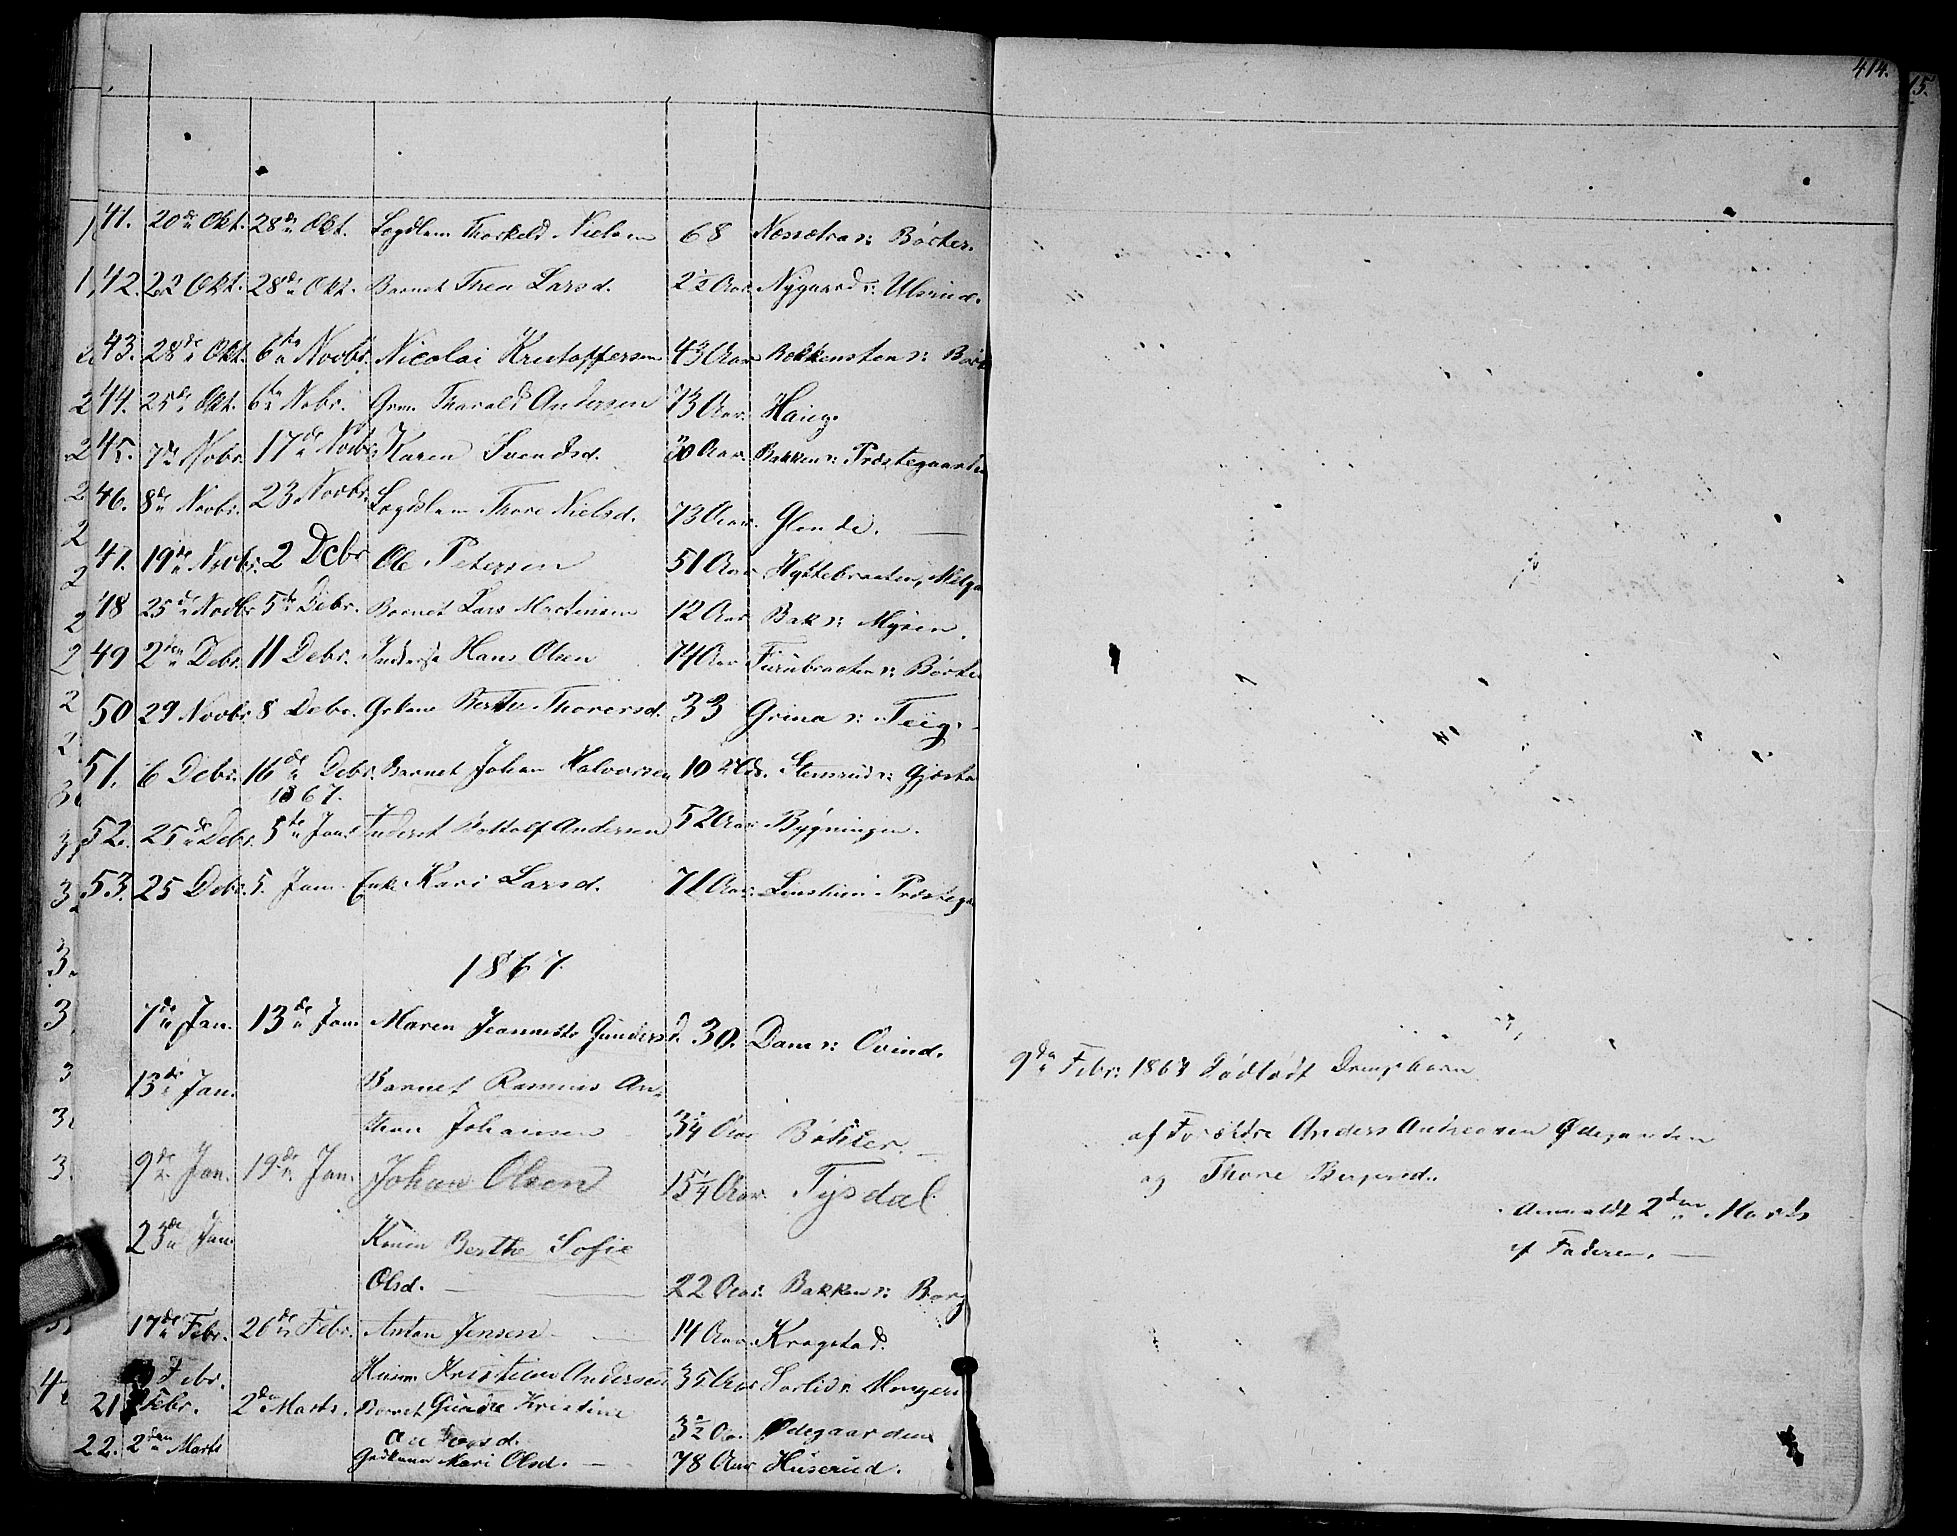 414.
15.
41. 20de Okt. 28de Okt. Lægdslem Thorkeld Nielsen 68 Næssetra v: Börter.
42. 22 Okt. 28de Okt. Barnet Thea Larsd. 2½ Aar Nygaard v: Ulsrud.
43. 28de Okt. 6te Novbr. Nicolai Kristoffersen 43 Aar Bekkensten v:
44. 25de Okt. 6te Nobr. Grm. Tharald Andersen 73 Aar. Haug.
45. 7de Nobr. 17de Novbr. Karen Svendsd. 30 Aar. Bakken v: Præstegaarden
46. 8de Novbr. 23 Novbr. Lægdslem Thore Nielsd. 73 Aar. Glende.
47. 19de Novbr. 2 Debr Ole Petersen 51 Aar Hyttebraaten,
48 25de Novbr 5te Debr. Barnet Lars Martinsen 12 Aar Bak v: Mysen.
49 2den Debr. 11 Debr. Inderst Hans Olsen 74 Aar Furubraaten v: Börter
50 29 Novbr. 8 Debr. Grkone Berthe Thorersd. 33 Grina v: Teig.
51. 6 Debr. 16de Debr. Barnet Johan Halvorsen 10 Mds. Stensrud v:
1867.
52. 25de Debr. 5te Jan. Inderst Bottolf Andersen 52 Aar Bygningen.
53. 25 Debr. 5. Jan. Enke Kari Larsd. 71 Aar. Præstega
1867
7de Jan. 13de Jan. Maren Jeannette Gundersd. 30. Dam v: Ovind.
13de Jan. Barnet Rasmus An-
thon Johansen 3¼ Aar Böhler.
9de Jan. 19de Jan. Johan Olsen 15¼ Aar. Tysdal
23de Jan. Konen Berthe Sofie
Olsd. 22 Aar. Bakken v: Borg
17de Febr. 26de Febr. Anton Jensen 14 Aar Kragstad.
Febr. Kristian Andersen 35 Aar Sorlid v:
21 Febr. 2den Marts. Barnet Gunde Kristine
Andersd. 3½ Aar. Ødegaarden
22. 2den Marts Gaardkone Mari Olsd. 78 Aar Huserud.
9de Febr. 1867 Dödfödt Drengebarn
af Forældre Anders Andreasen Ødegaarden
og Thore Bergersd.
Anmeldt 2den Marts
af Faderen.